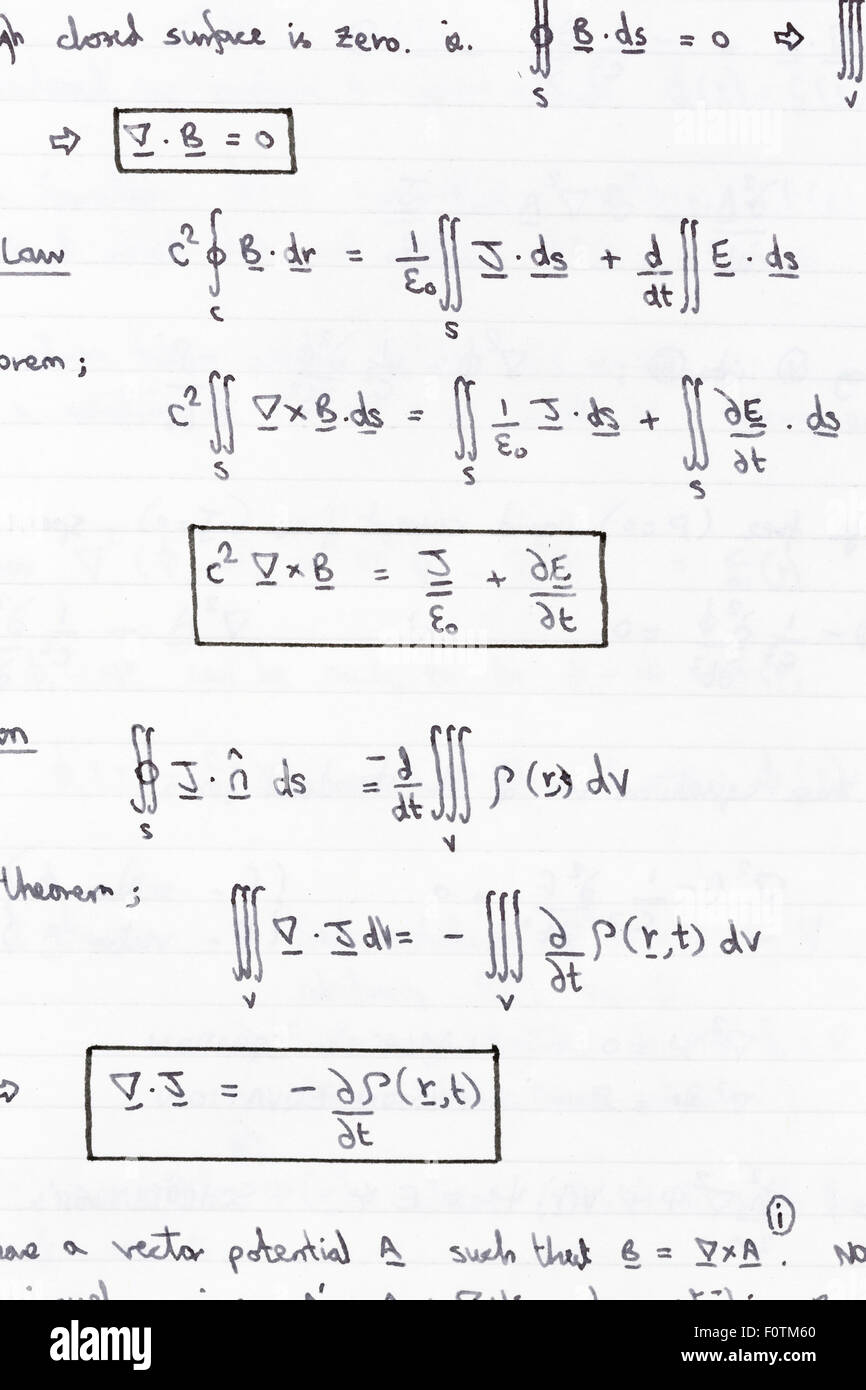 closed surface is zero. ie. ∯_S B̲·d̲s̲ = 0 ⇨ ∭_V
⇨ ∇̲·B̲ = 0
Law c² ∮_C B̲·d̲r̲ = 1/ε₀ ∬_S J̲·d̲s̲ + d/dt ∬ E̲·d̲s̲
orem;
c² ∬_S ∇̲×B̲·d̲s̲ = ∬_S 1/ε₀ J̲·d̲s̲ + ∬_S ∂E̲/∂t · d̲s̲
c² ∇̲×B̲ = J̲/ε₀ + ∂E̲/∂t
on ∯_S J̲·n̲̂ ds = -d/dt ∭_V ρ(r̲,t) dV
theorem;
∭_V ∇̲·J̲ dV = - ∭_V ∂/∂t ρ(r̲,t) dV
⇨ ∇̲·J̲ = - ∂ρ(r̲,t)/∂t
a vector potential A̲ such that B̲ = ∇̲×A̲ ⓘ. No
alamy
Image ID: F0TM60
www.alamy.com